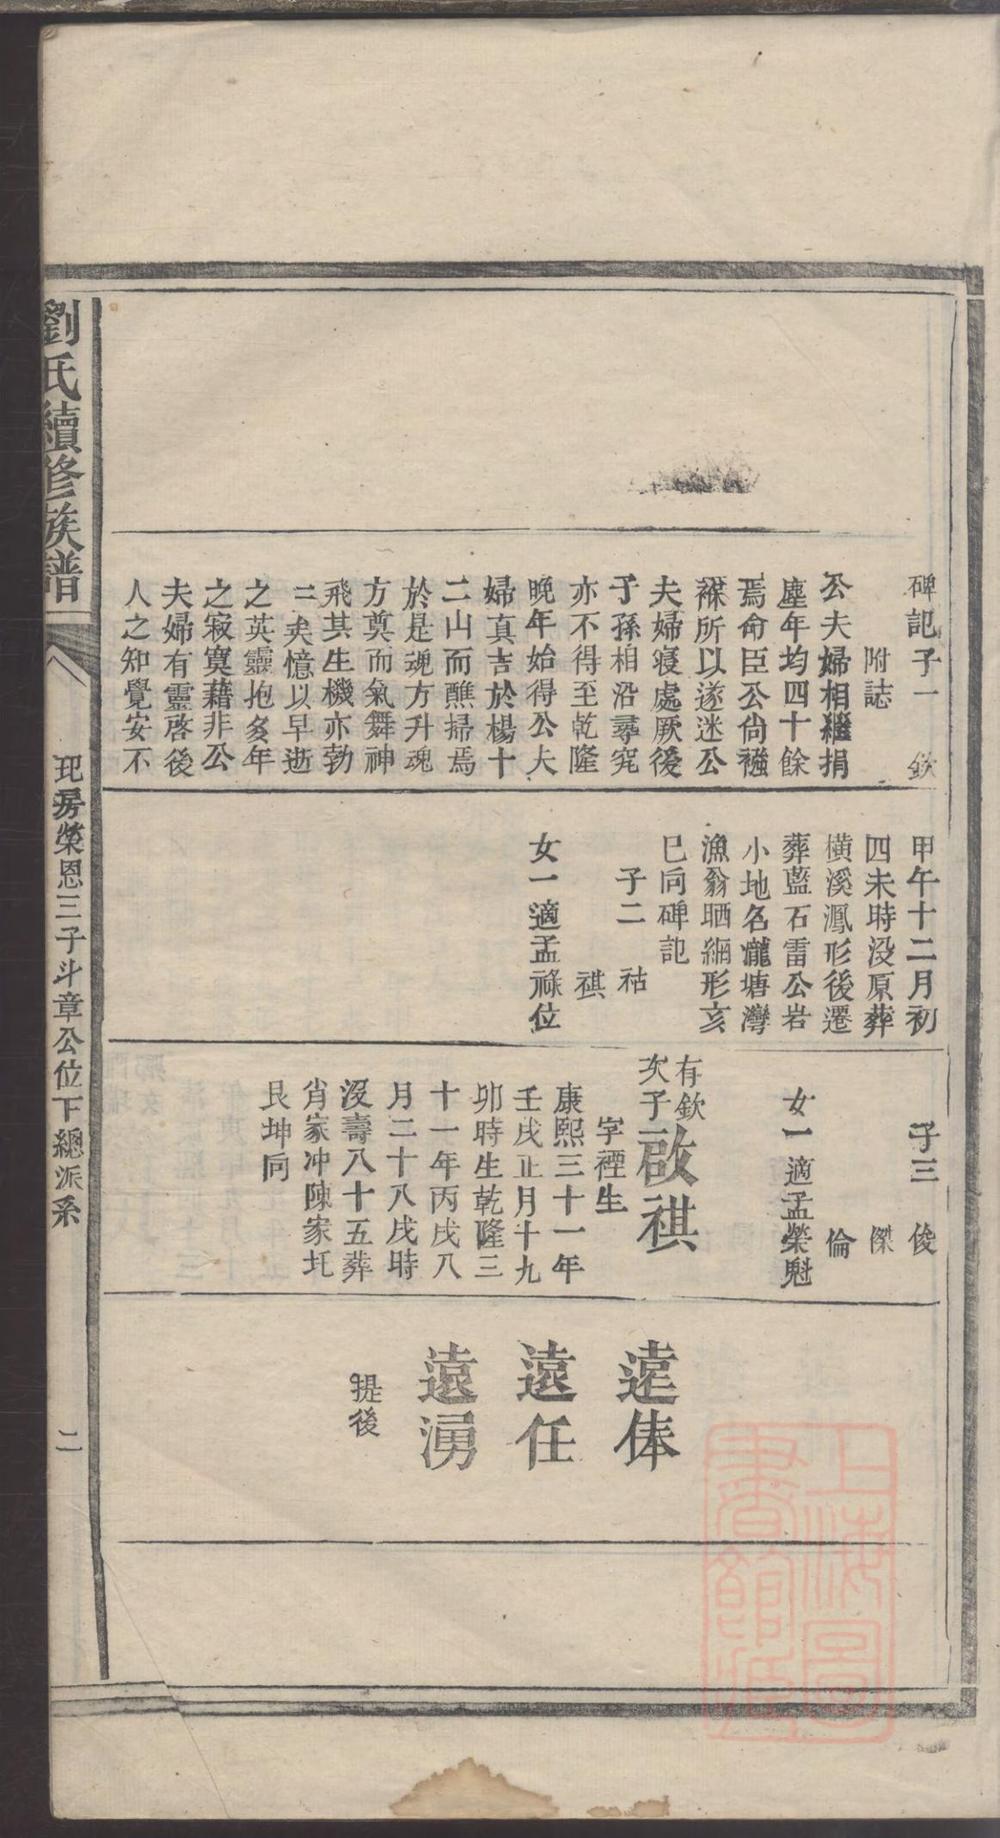 劉氏續修族譜
玘房榮恩三子斗章公位下總派系
二
碑記子一 欽
附誌
公夫婦相繼捐
塵年均四十餘
焉命臣公尙襁
褓所以遂迷公
夫婦寢處厥後
子孫相沿尋究
亦不得至乾隆
晚年始得公夫
婦真吉於楊十
二山而醮掃焉
於是魂方升魂
方奠而氣舞神
飛其生機亦勃
二矣憶以早逝
之英靈抱多年
之寂寞藉非公
夫婦有靈啓後
人之知覺安不
甲午十二月初
四未時没原葬
橫溪鳳形後遷
葬藍石雷公岩
小地名瀧塘灣
漁翁晒網形亥
巳向碑記
子二 祜
祺
女一適孟祿位
子三 俊
傑
倫
女一適孟榮魁
有欽
次子啟祺
字禋生
康熙三十一年
壬戌正月十九
卯時生乾隆三
十一年丙戌八
月二十八戌時
沒壽八十五葬
肖家冲陳家圫
艮坤向
遠俸
遠任
遠湧
提後
上海圖
書館藏